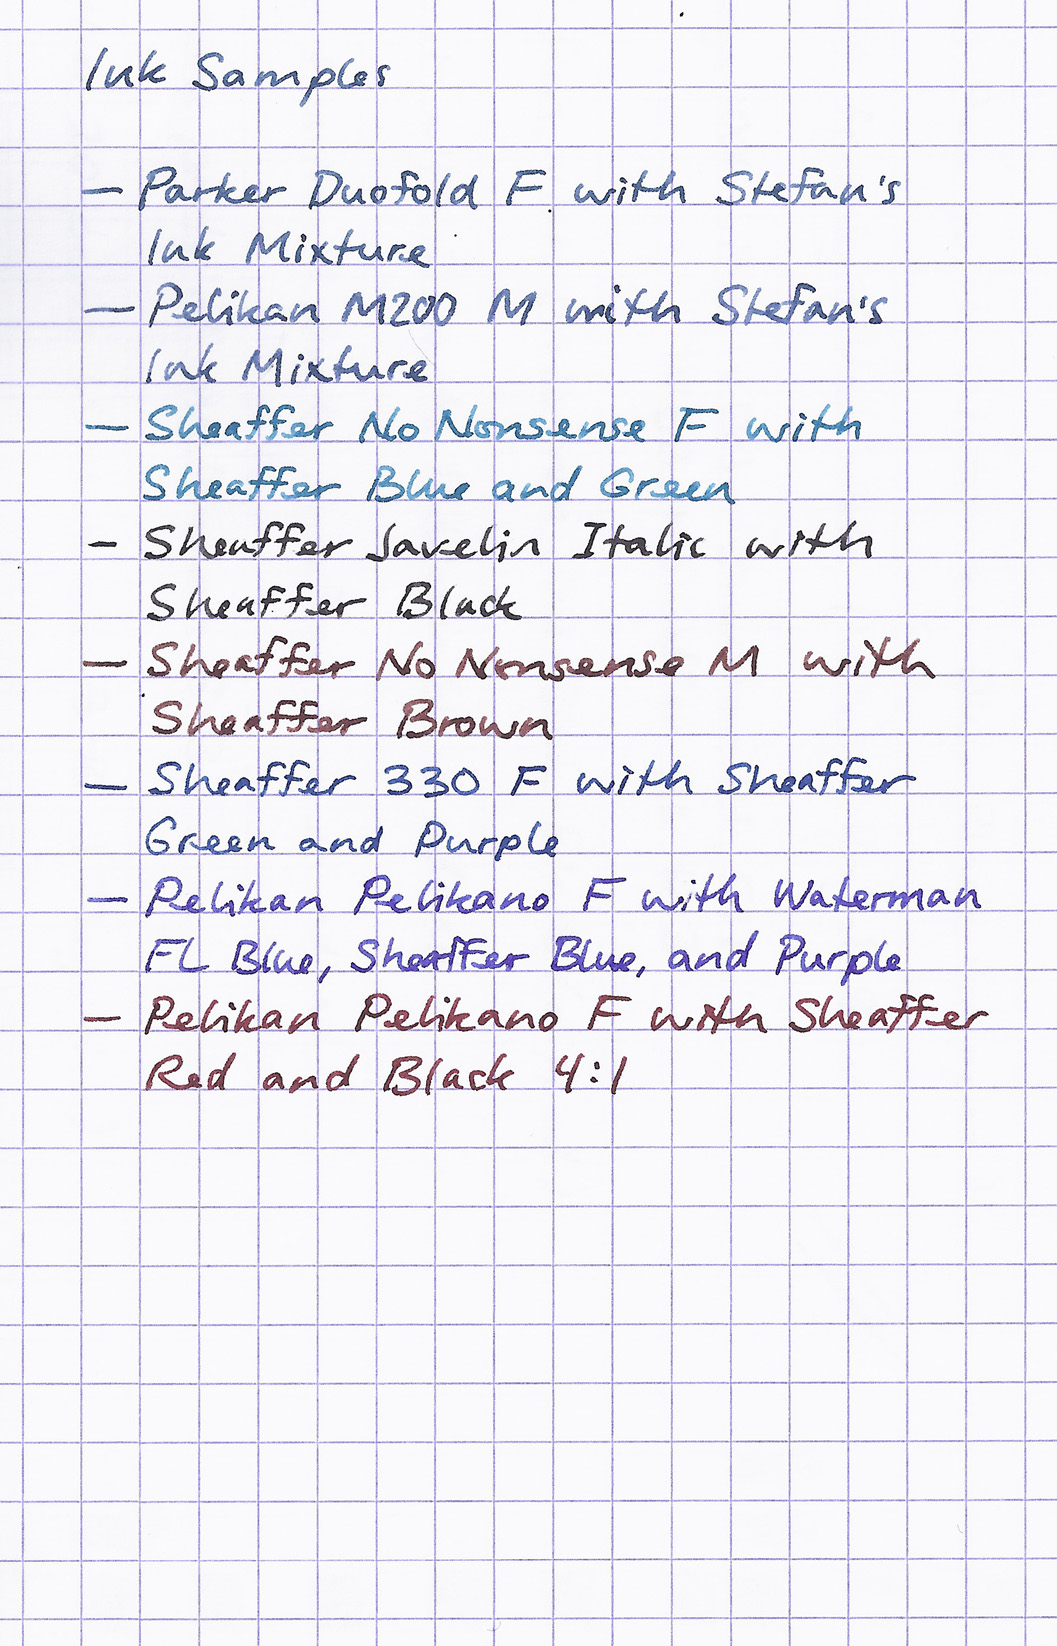 Ink Samples
— Parker Duofold F with Stefan's
Ink Mixture
— Pelikan M200 M with Stefan's
Ink Mixture
— Sheaffer No Nonsense F with
Sheaffer Blue and Green
– Sheaffer Javelin Italic with
Sheaffer Black
— Sheaffer No Nonsense M with
Sheaffer Brown
— Sheaffer 330 F with Sheaffer
Green and Purple
— Pelikan Pelikano F with Waterman
FL Blue, Sheaffer Blue, and Purple
— Pelikan Pelikano F with Sheaffer
Red and Black 4:1